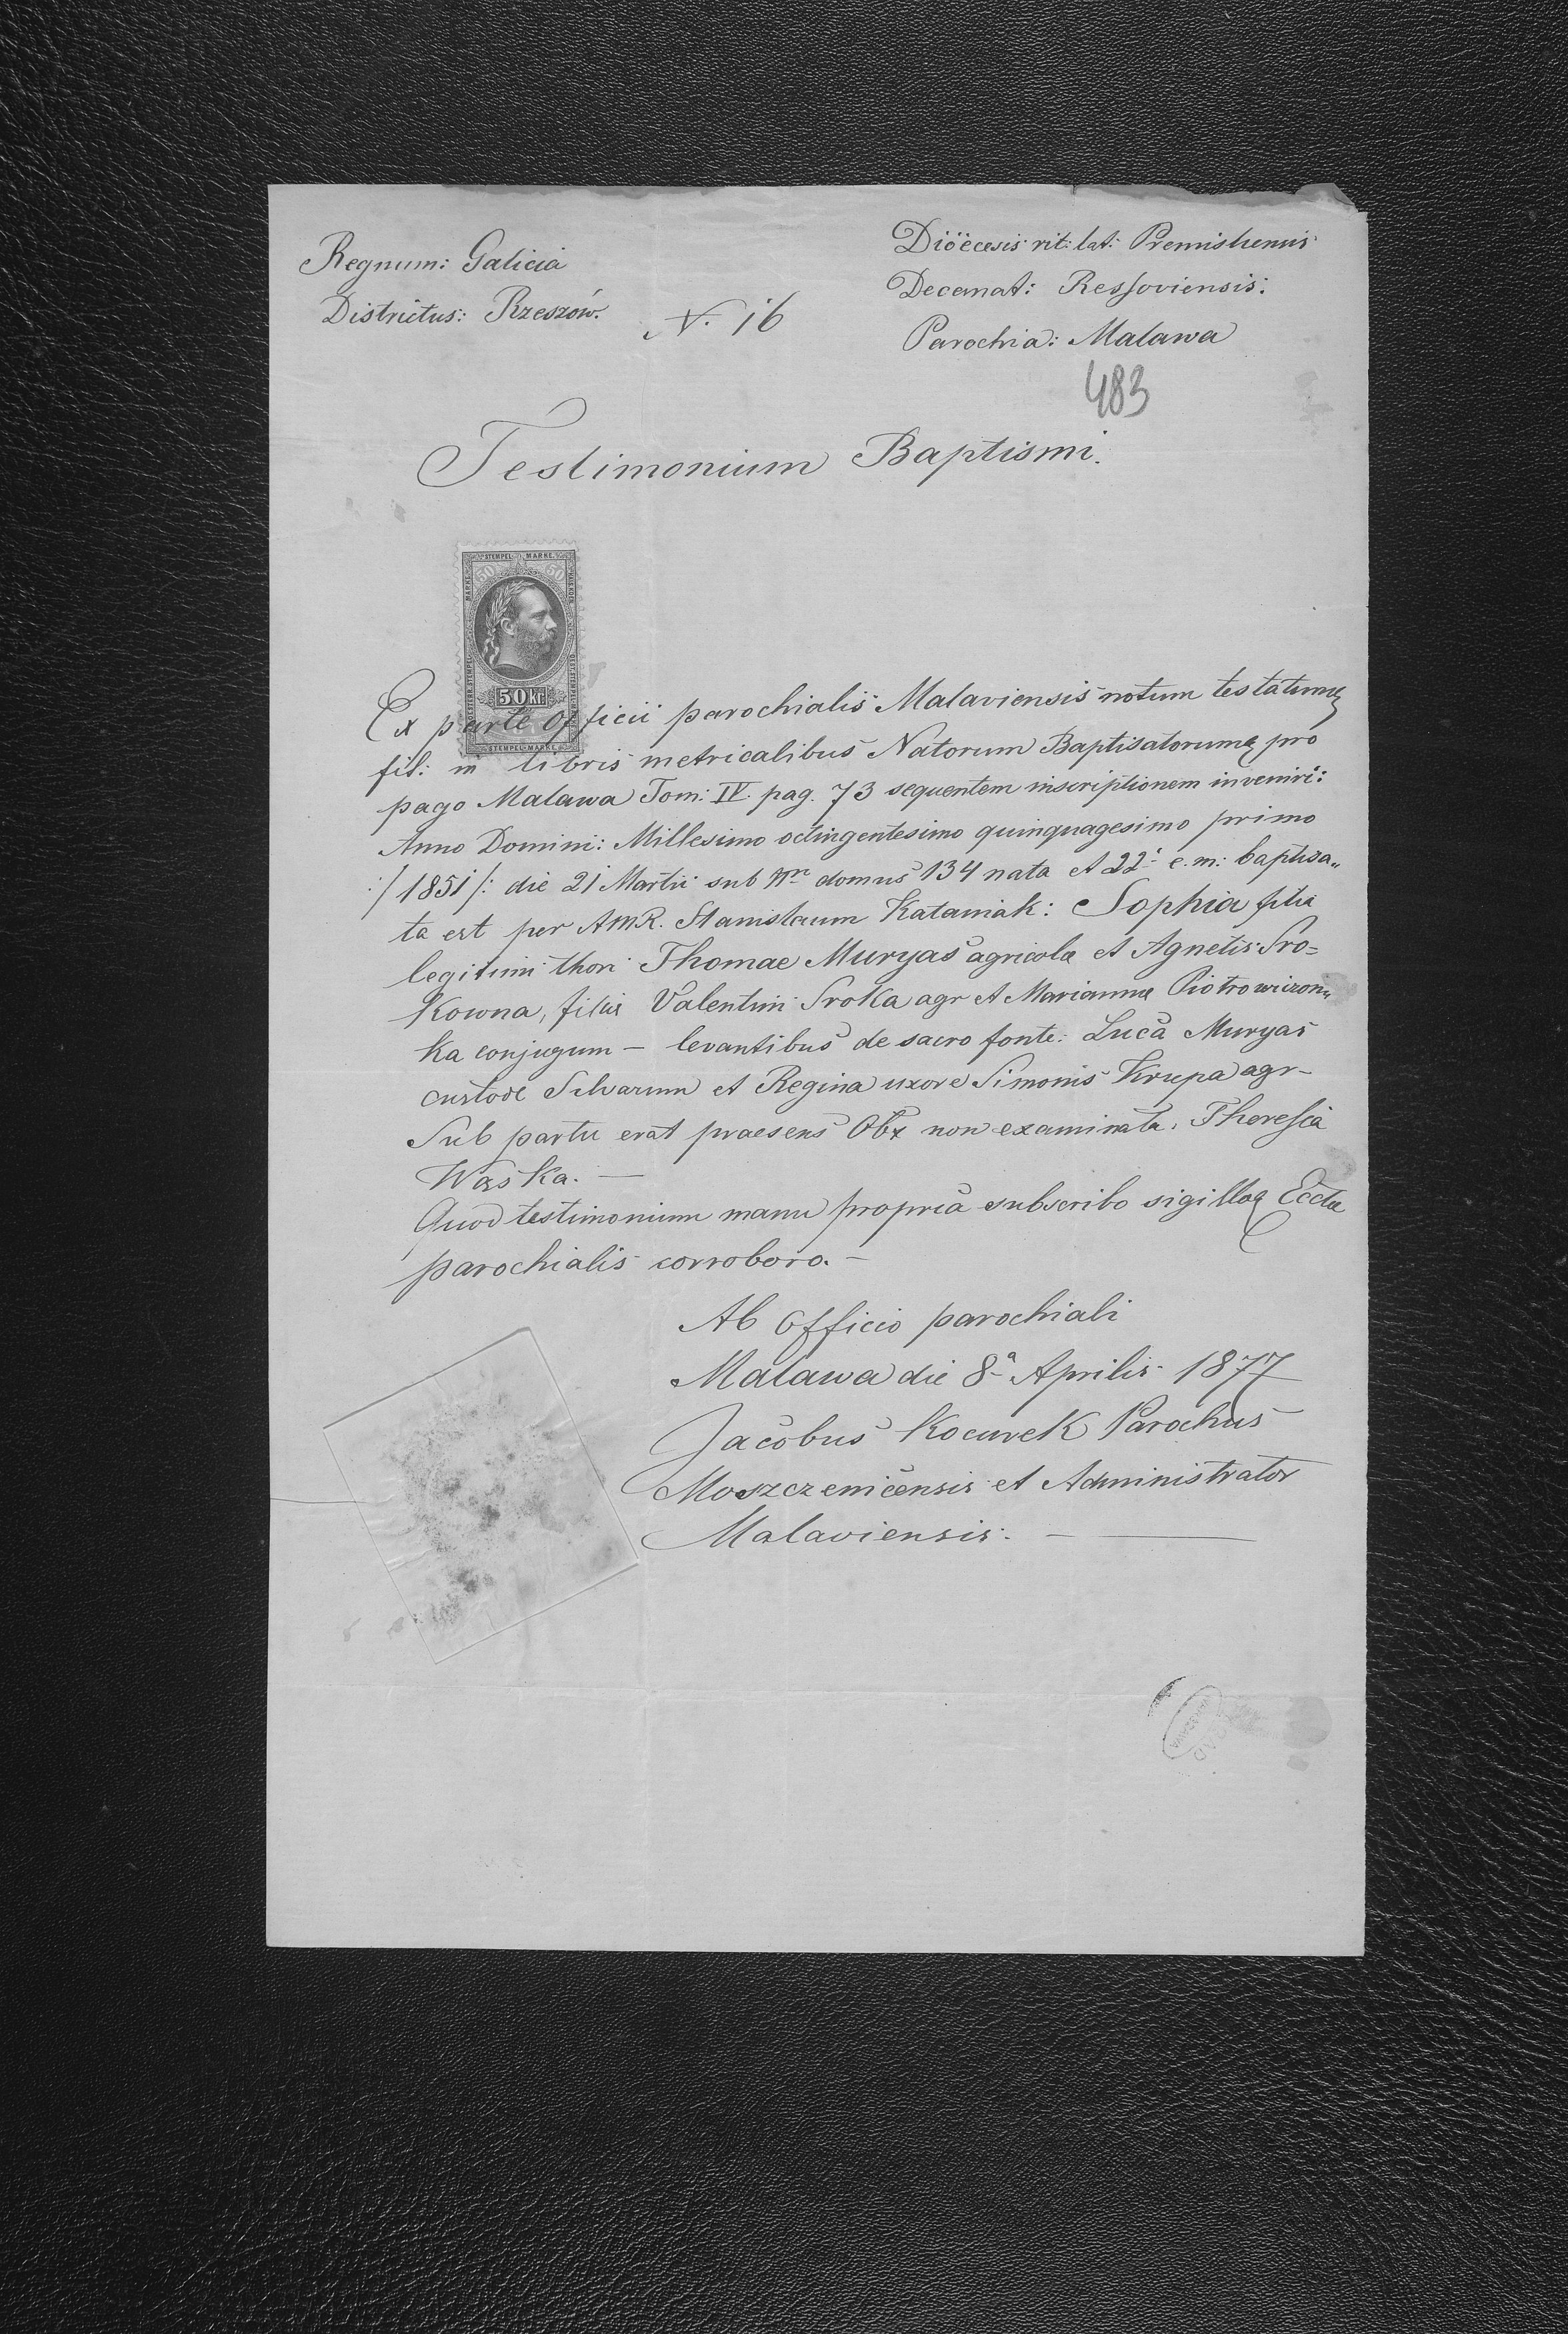 Regnum: Galicia
Districtus: Rzeszów.
N. 16
Dioëcesis rit: lat: Premisliensis
Decanat: Ressoviensis.
Parochia: Malawa
483
Testimonium Baptismi.
STEMPEL MARKE
50 50
50 kr
STEMPEL-MARKE
Ex parte officii parochialis Malaviensis notum testatumq
fit: in libris metricalibus Natorum Baptisatorumq pro
pago Malawa Tom: IV. pag. 73 sequentem inscriptionem inveniri:
Anno Domini: Millesimo octingentesimo quinquagesimo primo
:/1851/: die 21 Martii sub Nro domus 134 nata et 22a e. m: baptisa„
ta est per AMR. Stanislaum Kataniak: Sophia filia
legitimi thori Thomae Muryas agricolae et Agnetis Sro=
kowna, filia Valentini Sroka agr et Mariannae Piotrowiczon„
ka conjugum – levantibus de sacro fonte: Luca Muryas
custode Silvarum et Regina uxore Simonis Krupa agr–
Sub partu erat praesens Obx non examinata, Theresia
Waśka. —
Quod testimonium manu propria subscribo sigilloq Ecclae
parochialis corroboro. –
Ab officio parochiali
Malawa die 8a Aprilis 1877
Jacobus Kocurek Parochus
Moszczenicensis et Administrator
Malaviensis. —